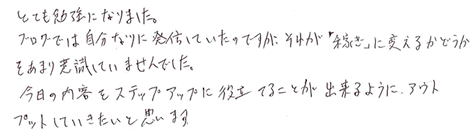 とても勉強になりました。
ブログでは自分なりに発信していたのですが、それが「稼ぎ」に変えるかどうか
をあまり意識していませんでした。
今日の内容をステップアップに役立てることが出来るように、アウト
プットしていきたいと思います